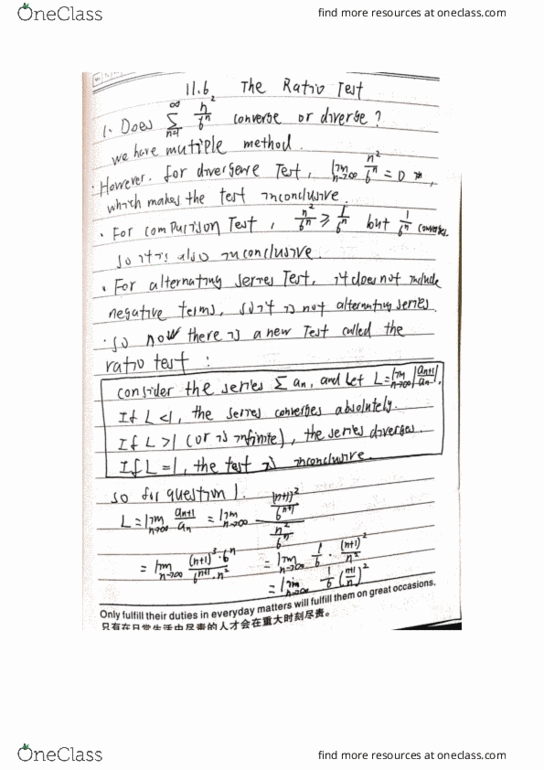 OneClass
find more resources at oneclass.com
11.6 The Ratio Test
1. Does ∑_{n=1}^{∞} n²/6ⁿ converge or diverge?
we have mutiple method.
· However. for divergence Test, lim_{n→∞} n²/6ⁿ = 0
which makes the test inconclusive.
· For comparison Test, n²/6ⁿ ⩾ 1/6ⁿ but 1/6ⁿ converges
so it is also inconclusive.
· For alternating series Test, it does not include
negative terms, so it is not alternating series.
· so now there is a new Test called the
ratio test :
consider the series Σ an, and let L = lim_{n→∞} |an+1/an|.
If L < 1, the series converges absolutely.
If L > 1 (or is infinite), the series diverges.
If L = 1, the test is inconclusive.
so for question 1.
L = lim_{n→∞} an+1/an = lim_{n→∞} ((n+1)²/6ⁿ⁺¹)/(n²/6ⁿ)
= lim_{n→∞} (n+1)²·6ⁿ/6ⁿ⁺¹·n² = lim_{n→∞} 1/6 · (n+1)²/n²
= lim_{n→∞} 1/6 (n+1/n)²
Only fulfill their duties in everyday matters will fulfill them on great occasions.
只有在日常生活中尽责的人才会在重大时刻尽责。
OneClass
find more resources at oneclass.com